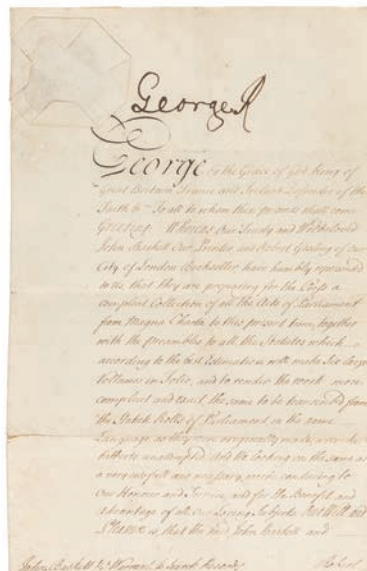 George R
George by the Grace of God King of
Great Britain France and Ireland Defender of the
Faith &c To all to whom these presents shall come
Greeting. Whereas Our Trusty and Welbeloved
John Baskett Our Printer, and Robert Gosling of our
City of London Bookseller, have humbly represented
to us, that they are preparing for the Press a
compleat Collection of all the Acts of Parliament
from Magna Charta to this present time, together
with the Preambles to all the Statutes which
according to the best Estimation will make Six large
Volumes in Folio, and to render the work more
compleat and exact, the same to be transcribed from
the Rolls of Parliament in the same
Language as they were originally made, a work
hitherto unattempted. And We looking on the same as
a very usefull and necessary work conducing to
our Honour and Service, and for the Benefit and
advantage of all Our Loving Subjects Our Will and
Pleasure is, that the said John Baskett and
John Baskett Warrant to Search Records
Robert